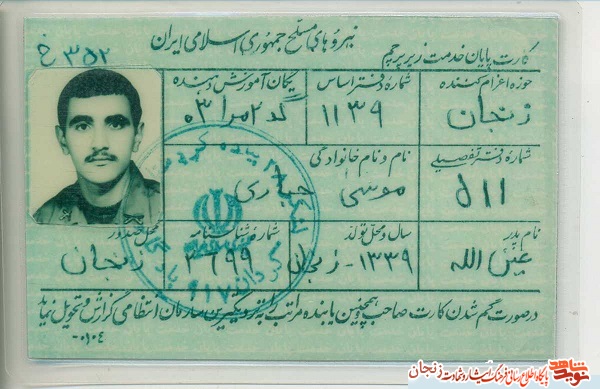 نیروهای مسلح جمهوری اسلامی ایران
۳۵۲ خ
کارت پایان خدمت زیر پرچم
حوزه اعزام کننده
زنجان
شماره دفتر اساس
۱۱۳۹
یکان آموزش دهنده
شماره دفتر تفصیلی
۵۱۱
نام و نام خانوادگی
موسی
نام پدر
عین الله
سال و محل تولد
۱۳۳۹ - زنجان
شماره شناسنامه
۳۶۹۹
محل صدور
زنجان
درصورت گم شدن کارت صاحب و همچنین یابنده مراتب را به نزدیکترین سازمان انتظامی گزارش و تحویل نماید
نوید شاهد
پایگاه اطلاع رسانی فرهنگ ایثار و شهادت زنجان